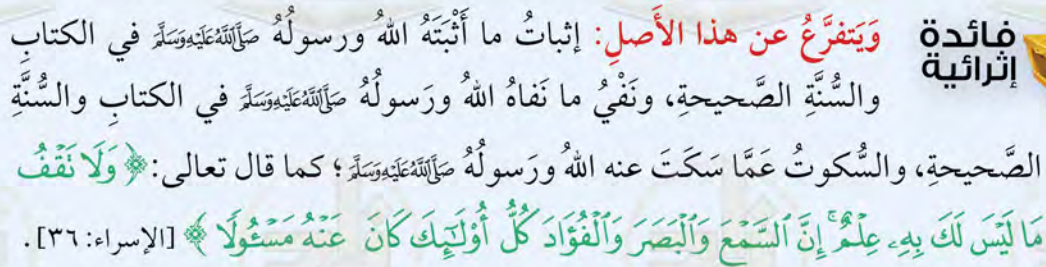 فائدة
إثرائية
وَيَتفرَّعُ عن هذا الأَصلِ: إثباتُ ما أَثْبَتَهُ اللهُ ورسولُهُ صَلَّى اللَّهُ عَلَيْهِ وَسَلَّمَ في الكتابِ
والسُّنَّةِ الصَّحيحةِ، ونَفْيُ ما نَفاهُ اللهُ ورَسولُهُ صَلَّى اللَّهُ عَلَيْهِ وَسَلَّمَ في الكتابِ والسُّنَّةِ
الصَّحيحةِ، والسُّكوتُ عَمَّا سَكَتَ عنه اللهُ ورَسولُهُ صَلَّى اللَّهُ عَلَيْهِ وَسَلَّمَ؛ كما قال تعالى: ﴿وَلَا تَقْفُ
مَا لَيْسَ لَكَ بِهِۦ عِلْمٌ ۚ إِنَّ ٱلسَّمْعَ وَٱلْبَصَرَ وَٱلْفُؤَادَ كُلُّ أُوْلَٰٓئِكَ كَانَ عَنْهُ مَسْـُٔولًا﴾ [الإسراء: ٣٦].